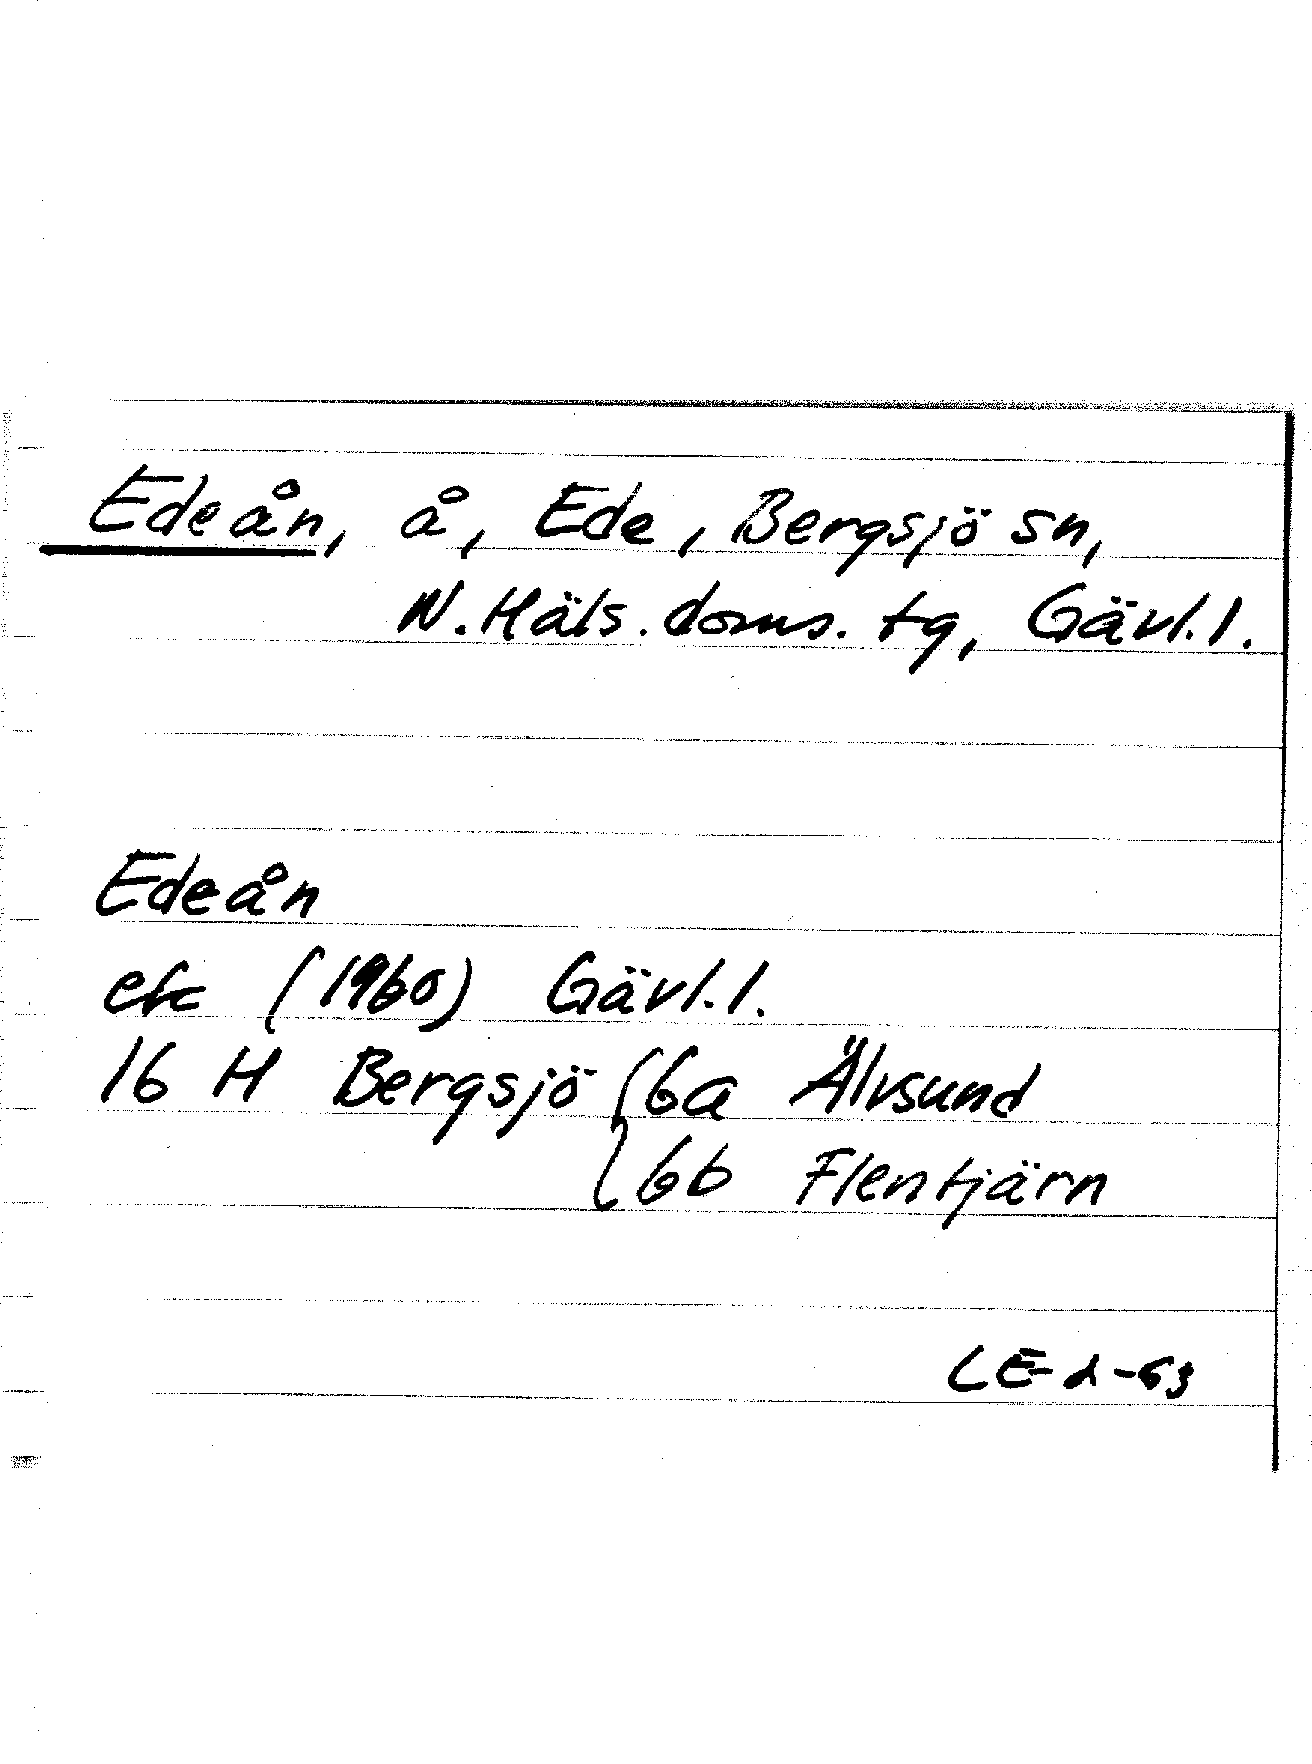 Edeån, å, Ede, Bergsjö sn,
N. Häls. doms. tg, Gävl. l.
Edeån
(1960) Gävl. l.
16 H Bergsjö { 6a Älvsund
6b Flentjärn
LE